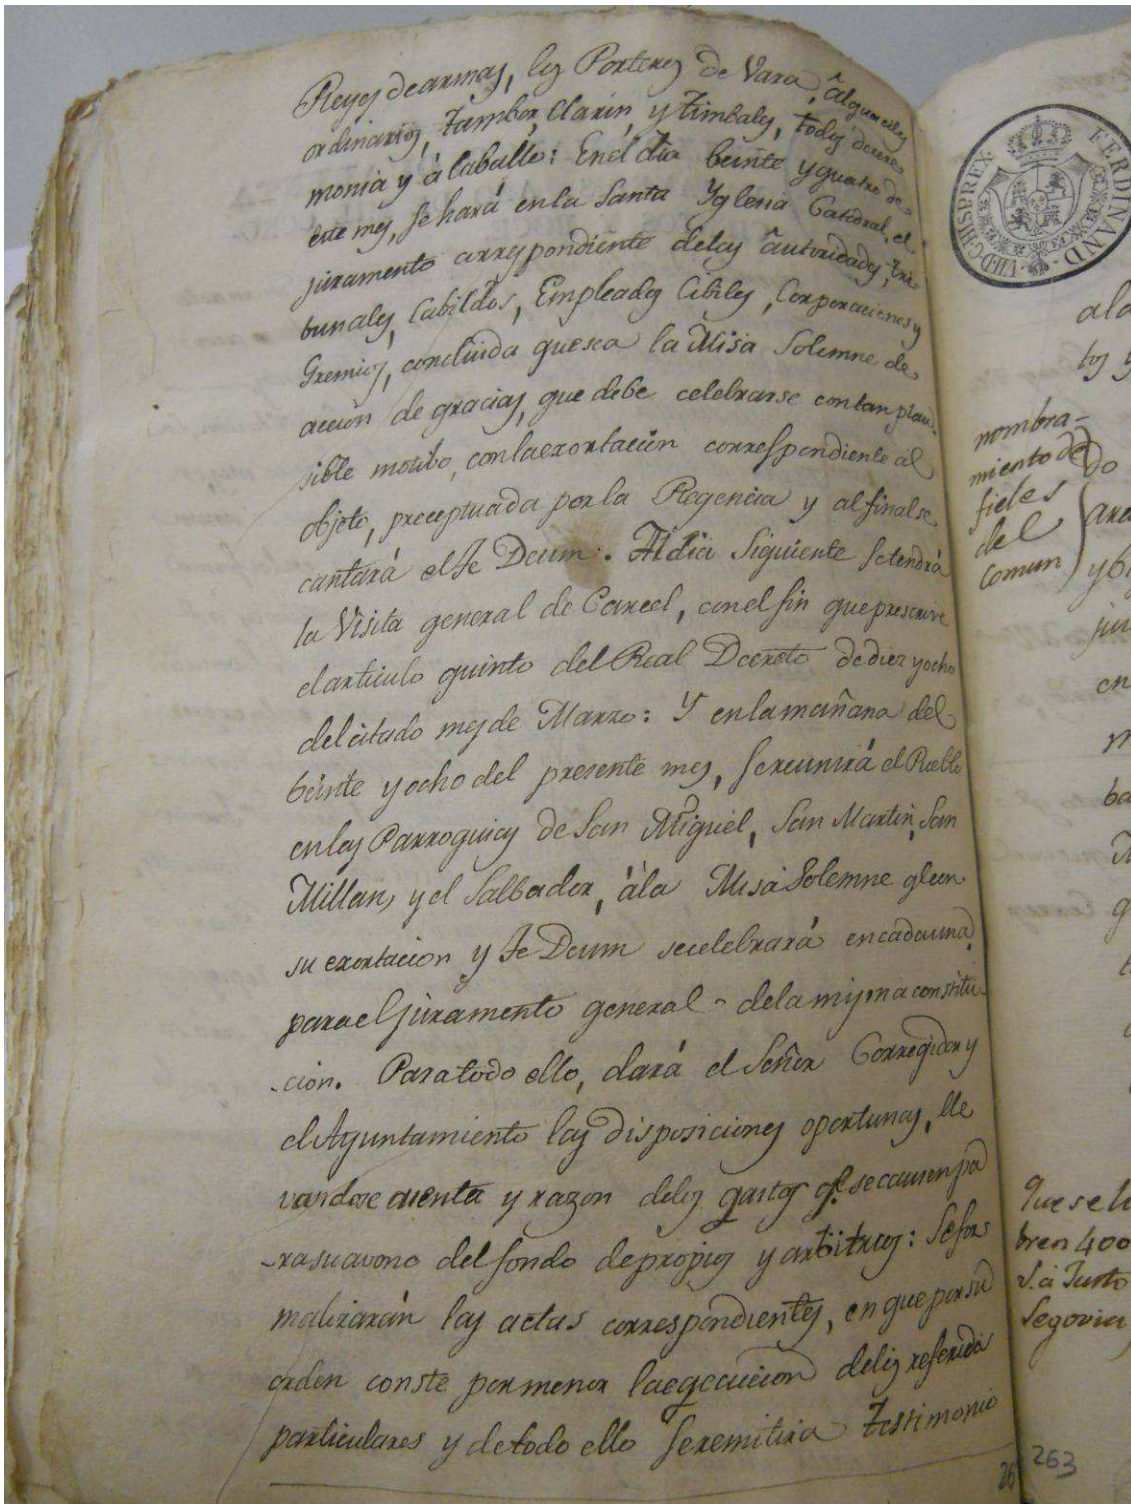 Reyes de armas, los Porteros de Vara, Alguaciles
ordinarios, tambor, Clarin, y timbales, todos de cere
monia y à Caballo: En el dia beinte y quatro de
este mes, se hará en la Santa Yglesia Catedral, el
juramento correspondiente de las autoridades, tri
bunales, Cabildos, Empleados Cibiles, Corporaciones y
Gremios, concluida que sea la Misa Solemne de
accion de gracias, que debe celebrarse con tan plau
sible motibo, con la exortacion correspondiente al
objeto, preceptuada por la Regencia y al final se
cantará el Te Deum: Al dia Siguiente se tendrá
la Visita general de Carcel, con el fin que prescrive
el articulo quinto del Real Decreto de diez y ocho
del citado mes de Marzo: Y en la mañana del
beinte y ocho del presente mes, se reunirá el Pueblo
en las Parroquias de San Miguel, San Martin, San
Millan, y el Salbador, à la Misa Solemne q.e con
su exortacion y Te Deum se celebrará en cada una
para el juramento general de la misma constitu
-cion. Para todo ello, dará el Señor Corregidor y
el Ayuntamiento las disposiciones oportunas, lle
vandose cuenta y razon de los gastos q.e se causen pa
-ra su avono del fondo de propios y arbitrios: Se for
malizarán las actas correspondientes, en que por su
orden conste por menor la egecucion de los referidos
particulares y de todo ello se remitira testimonio
26
FERDINAND · VII · D · G · HISP · REX ·
nombra-
miento de
fieles
del
Comun
do
en
Que se li
bren 400
r.s à Justo
Segovia
263